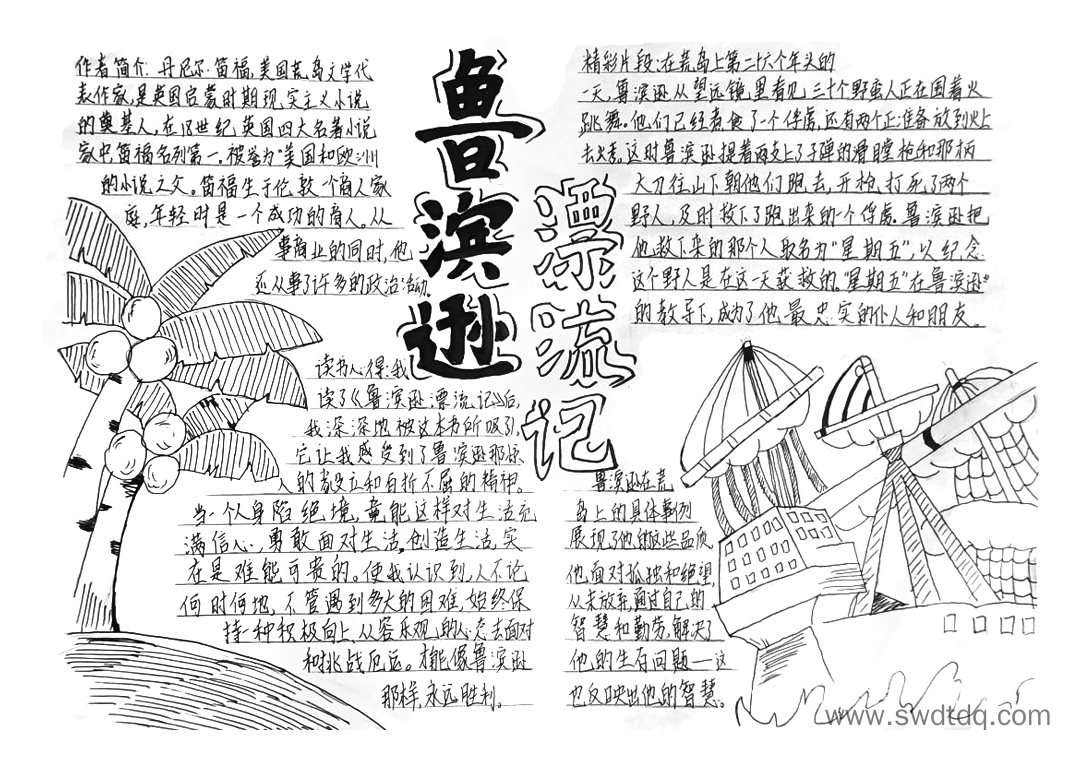 鲁滨逊
漂流记
作者简介:丹尼尔·笛福,美国荒岛文学代
表作家,是英国启蒙时期现实主义小说
的奠基人,在18世纪英国四大名著小说
家中笛福名列第一。被誉为“美国和欧洲
的小说之父。笛福生于伦敦一个商人家
庭,年轻时是一个成功的商人。从
事商业的同时,他
还从事了许多的政治活动。
精彩片段:在荒岛上第二十六个年头的
一天,鲁滨逊从望远镜里看见三十个野蛮人正在围着火
跳舞。他们已经煮食了一个俘虏,还有两个正准备放到火上
去烤,这时鲁滨逊提着两支上了子弹的滑膛枪和那柄
大刀往山下朝他们跑去,开枪打死了两个
野人,及时救下了跑出来的一个俘虏。鲁滨逊把
他救下来的那个人取名为“星期五”,以纪念
这个野人是在这一天获救的。“星期五”在鲁滨逊
的教导下,成为了他最忠实的仆人和朋友。
读书心得:我
读了《鲁滨逊漂流记》后,
我深深地被这本书所吸引,
它让我感受到了鲁滨逊那惊
人的毅立和百折不屈的精神。
当一个人身陷绝境,竟能这样对生活充
满信心,勇敢面对生活,创造生活,实
在是难能可贵的。使我认识到,人不论
何时何地,不管遇到多大的困难,始终保
持一种积极向上、从容乐观的心态去面对
和挑战厄运。才能像鲁滨逊
那样,永远胜利。
鲁滨逊在荒
岛上的具体事例
展现了他的这些品质
他面对孤独和绝望,
从未放弃,通过自己的
智慧和勤劳,解决了
他的生存问题—这
也反映出他的智慧。
www.swdtdq.com